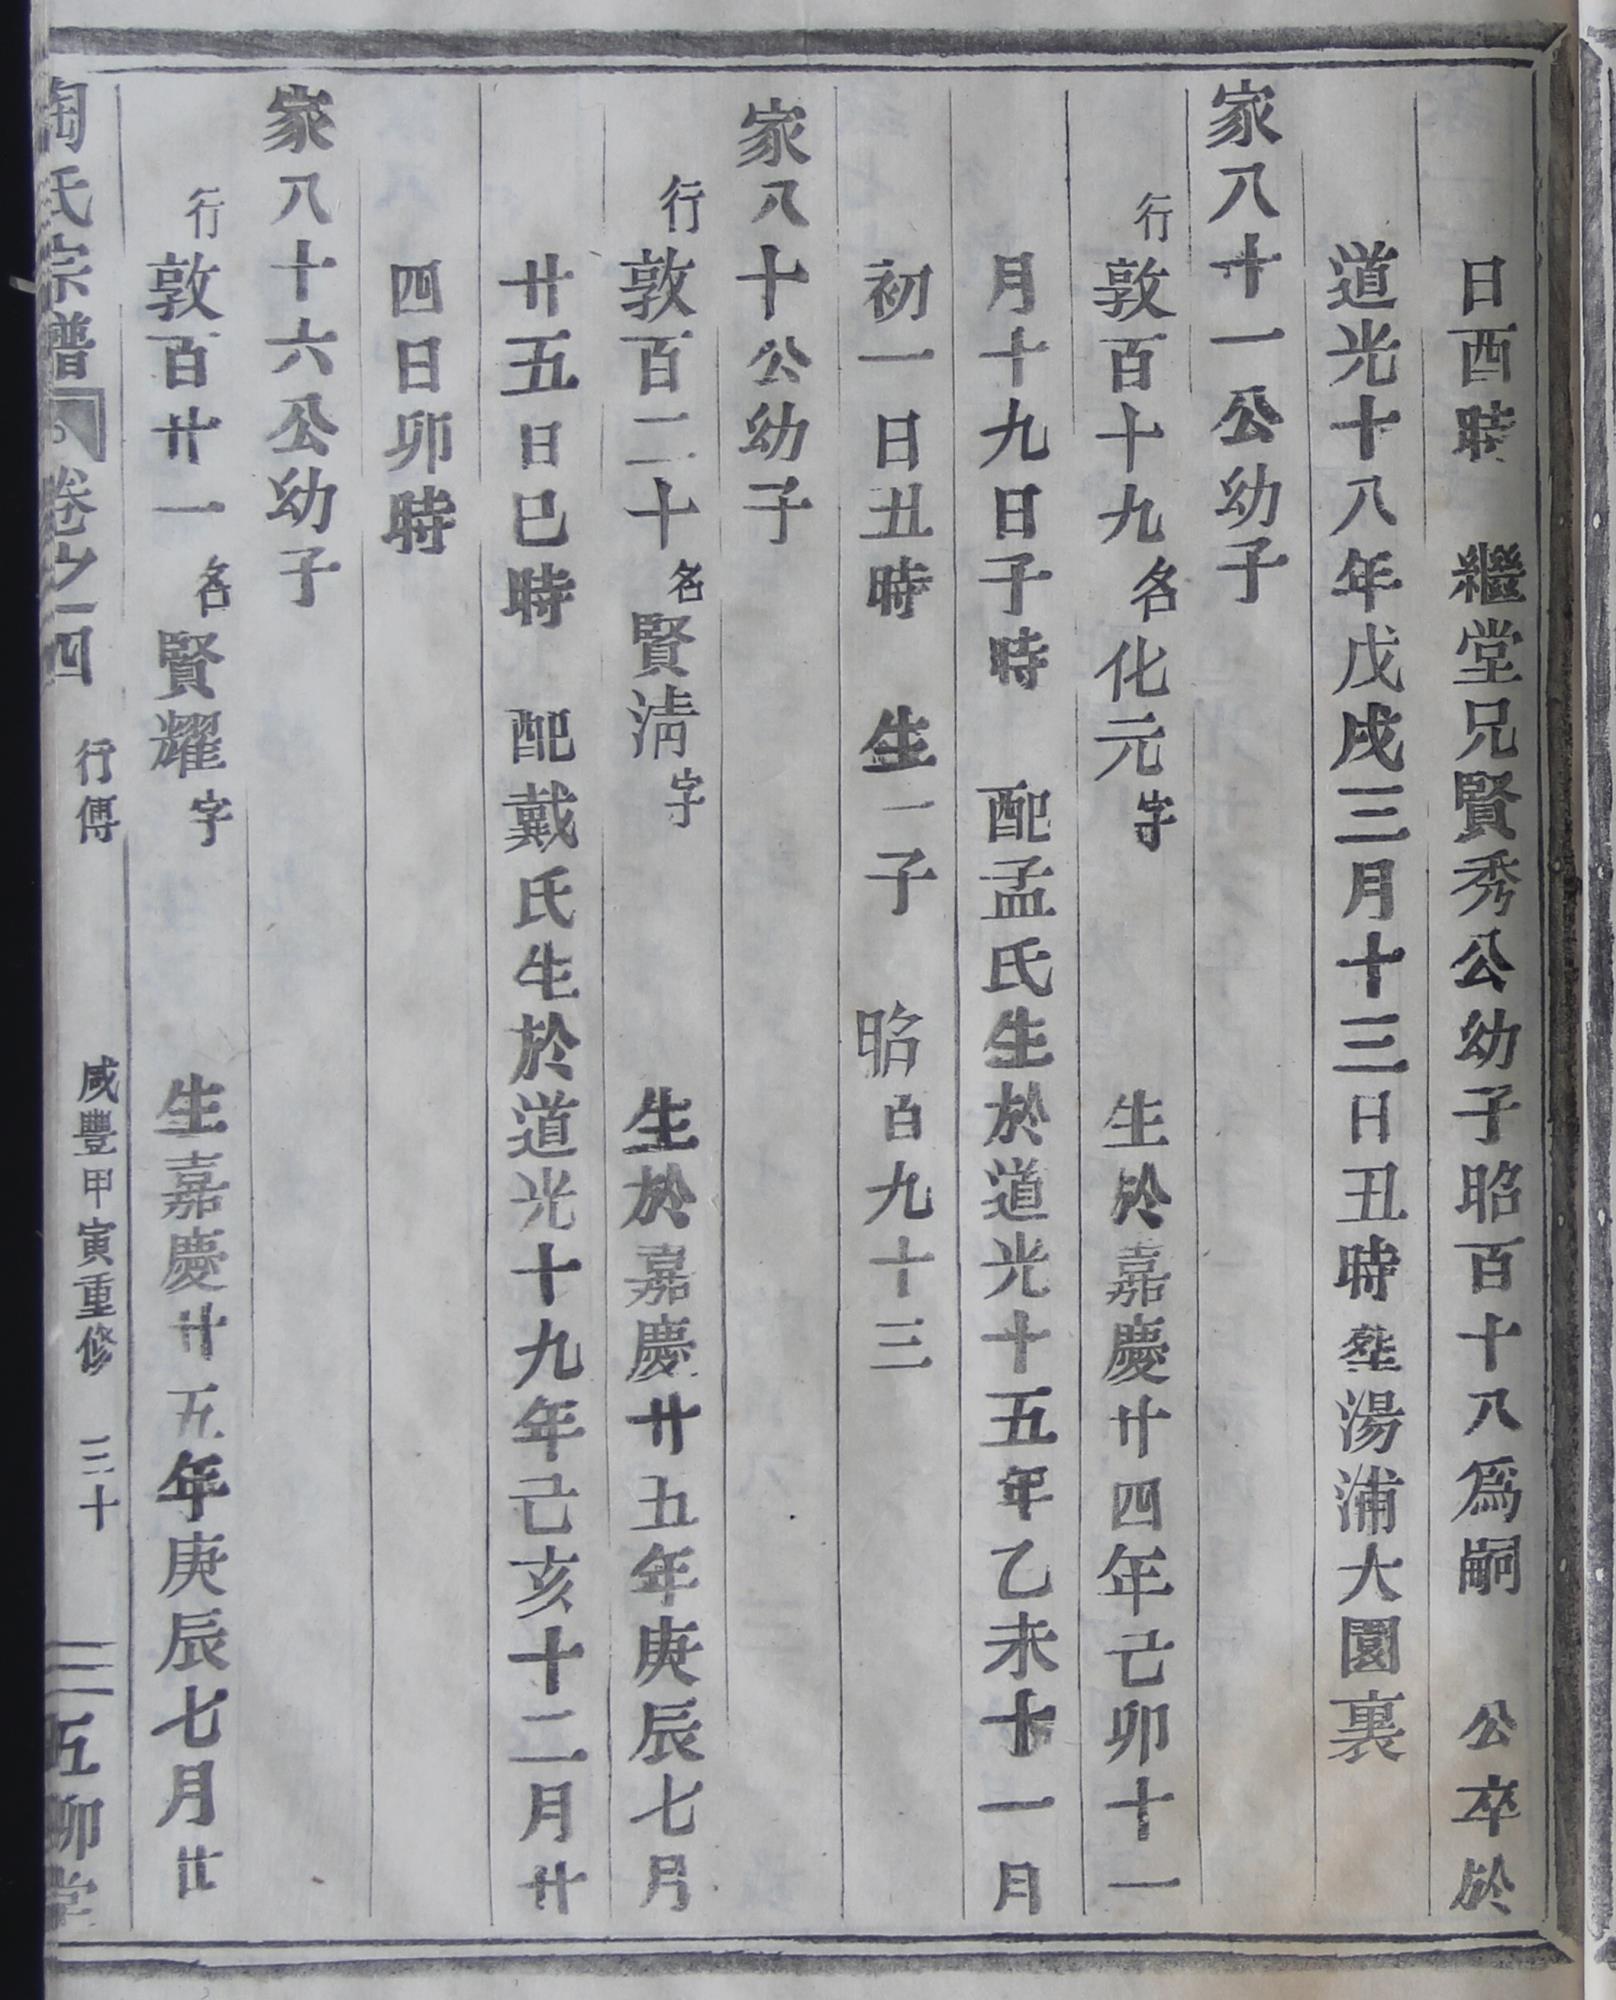 日酉時 繼堂兄賢秀公幼子昭百十八爲嗣 公卒於
道光十八年戊戌三月十三日丑時塟湯浦大園裏
家八十一公幼子
行敦百十九名化元字 生於嘉慶廿四年己卯十一
月十九日子時 配孟氏生於道光十五年乙未十一月
初一日丑時 生一子 昭百九十三
家八十公幼子
行敦百二十名賢淸字 生於嘉慶廿五年庚辰七月
廿五日巳時 配戴氏生於道光十九年己亥十二月廿
四日卯時
家八十六公幼子
行敦百廿一名賢耀字 生嘉慶廿五年庚辰七月廿
陶氏宗譜 卷之四 行傳 咸豐甲寅重修 三十 五柳堂